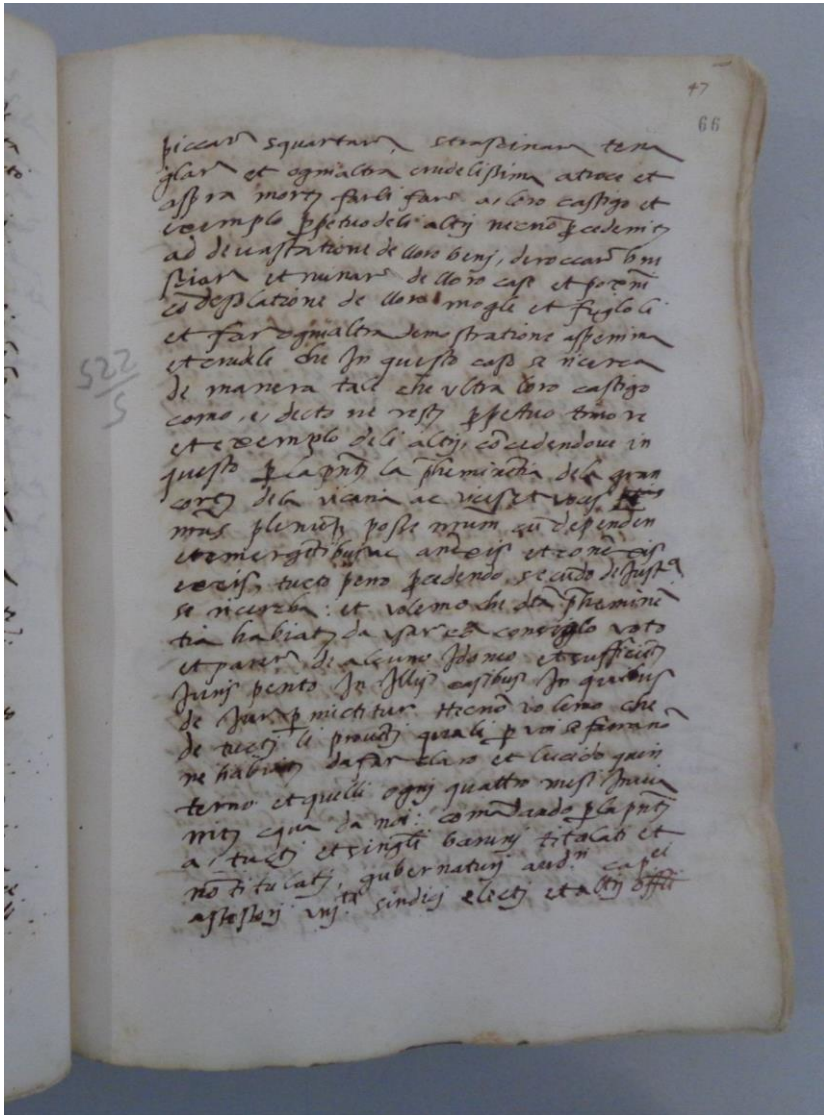 47
66
piccare squartare, strascinare tena
glare et ogni altra crudelissima atroce et
aspra morti farli fare a loro castigo et
exemplo ꝑpetuo deli altij necnō ꝓcedeniti
ad devastatione de lloro benj, deroccare bru
sciare et ruinare de lloro case et
cō desolatione de lloro mogle et figloli
et far ogni altra demostratione asperrima
et crudele che In questo caso se ricerca
de manera tale che ultra loro castigo
como, e, decto ne resti ꝑpetuo timore
et exemplo deli altij, cōcedendove in
questo ꝑ la pn̄ti la p̄heminētia dela gran
corti dela vicaria ac vices et voces
mās plenieq posse nrūm cū dependen
et emergētibus ac anēxis et cōnēxis
exis, tucto peno ꝓcedendo, secūdo de Justa
se ricercha: et volemo che dēa p̄heminē
tia habiati da usar cō consiglo voto
et parere de alcuno Idoneo et sufficiēti
Juris perito In Illis casibus In quibus
de Jure ꝑmictitur. Necnō volemo che
de tucti li processi quali ꝑ voi se farannō
ne habiati da far claro et lucido quin
terno et quelli ogni quattro mesi Invia
riti equa da noi: comādando ꝑ la pn̄ti
a, tucti et singuli baruni titolati et
nō titulati, gubernaturi aud.ri cap.ei
assessori un.ta sindici electi et altij offili
522
5